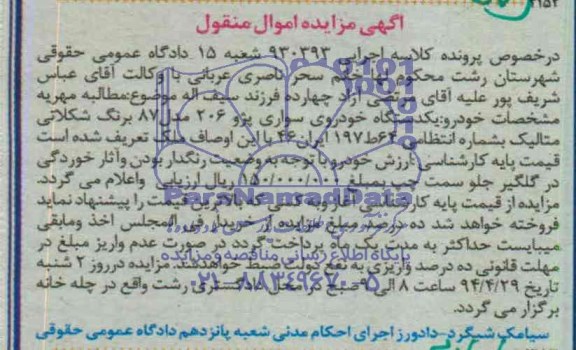 آگهی مزایده اموال منقول
درخصوص پرونده کلاسه اجرایی ۹۳۰۳۹۳ شعبه ۱۵ دادگاه عمومی حقوقی
شهرستان رشت محکوم لها خانم سحر ناصری عربانی با وکالت آقای عباس
شریف پور علیه آقای مرتضی آزاد چهارده فرزند سیف اله موضوع:مطالبه مهریه
مشخصات خودرو:یکدستگاه خودروی سواری پژو ۲۰۶ مدل۸۷ برنگ شکلاتی
متالیک بشماره انتظامی ۶۴ط۱۹۷ ایران۴۶ با این اوصاف ملک تعریف شده است
قیمت پایه کارشناسی :ارزش خودرو با توجه به وضعیت رنگدار بودن وآثار خوردگی
در گلگیر جلو سمت چپ بمبلغ ۱۵۰/۰۰۰/۱۰۰ ریال ارزیابی واعلام می گردد.
مزایده از قیمت پایه کارشناسی آغاز و به کسی که بالاترین قیمت را پیشنهاد نماید
فروخته خواهد شد ده درصد مبلغ مزایده از خریدار فی المجلس اخذ ومابقی
میبایست حداکثر به مدت یک ماه پرداخت گردد در صورت عدم واریز مبلغ در
مهلت قانونی ده درصد واریزی به نفع دولت ضبط خواهد شد. مزایده درروز ۲ شنبه
تاریخ ۹۴/۴/۲۹ ساعت ۸ الی ۹ صبح در محل دادگستری رشت واقع در چله خانه
برگزار می گردد.
سیامک شبگرد-دادورز اجرای احکام مدنی شعبه پانزدهم دادگاه عمومی حقوقی
ParsNamadData
پایگاه اطلاع رسانی مناقصه و مزایده
۰۲۱-۸۸۳۴۹۶۷۰-۵